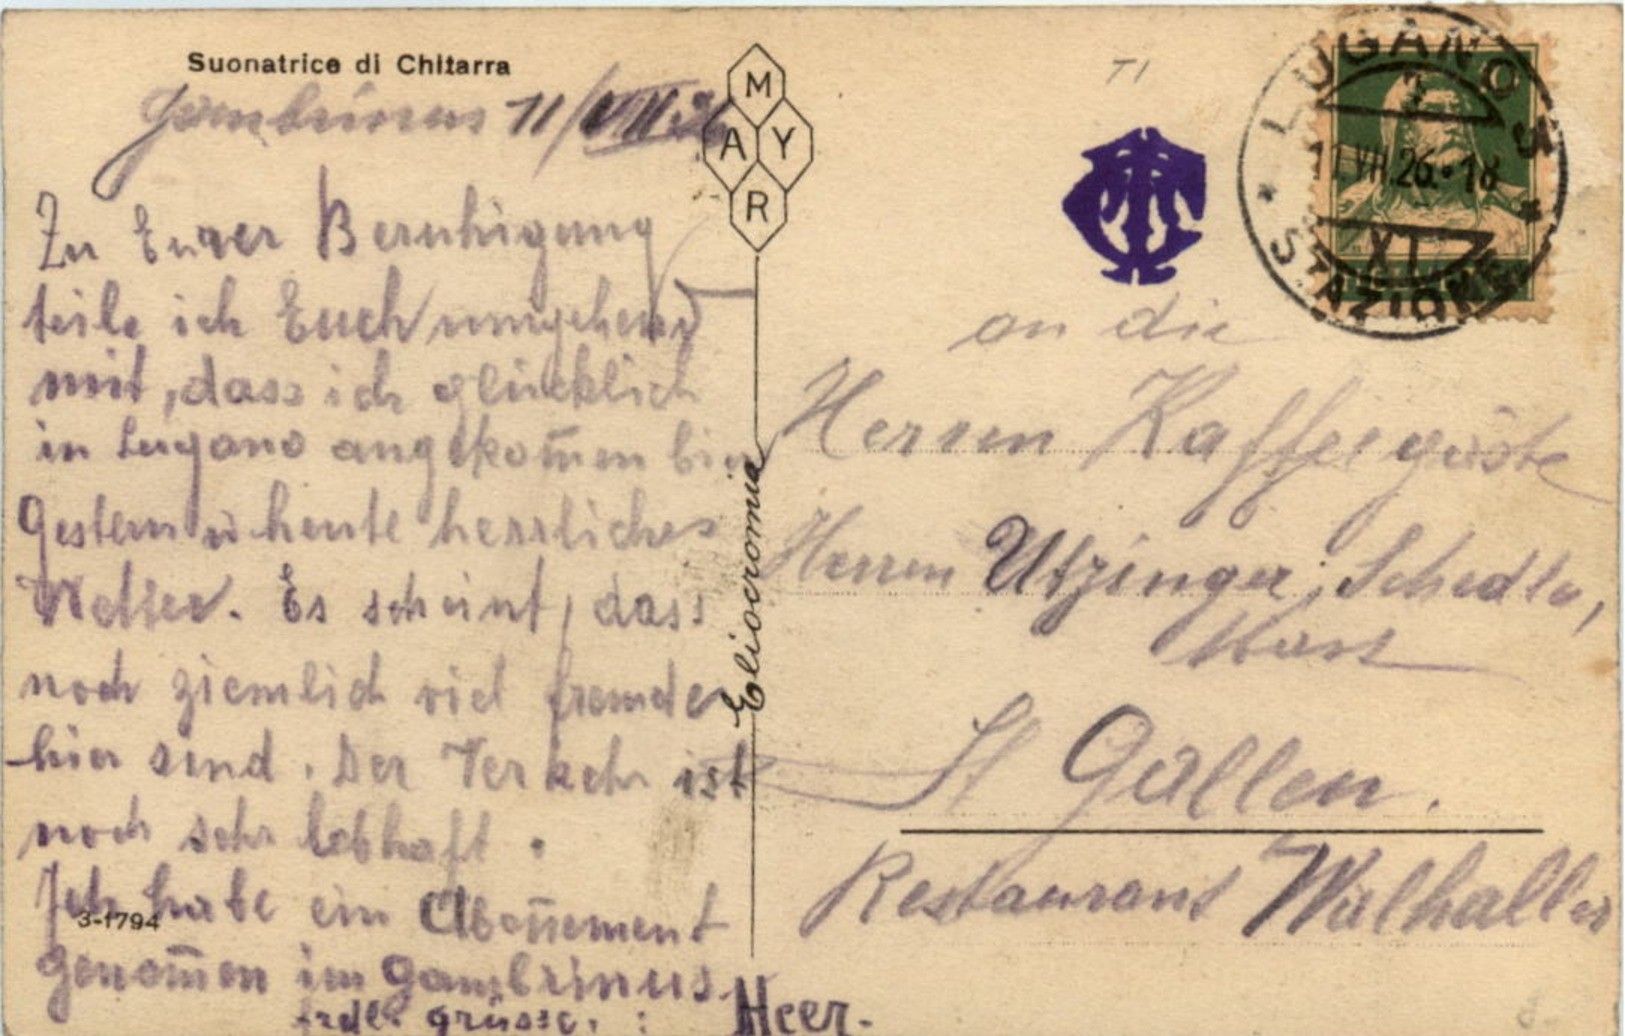 Suonatrice di Chitarra
Gambrinus 11/VII.26
Zu Eurer Beruhigung
teile ich Euch umgehend
mit, dass ich glücklich
in Lugano angekom̄en bin
Gestern u heute herrliches
Wetter. Es scheint, dass
noch ziemlich viel fremde
hier sind. Der Verkehr ist
noch sehr lebhaft.
Ich habe ein Abon̄ement
3-1794
genom̄en im Gambrinus.
frdl. grüsse. : Heer.
MAYR
Eliocromia
TI
LUGANO
11.VII.26.-18
XI
STAZIONE
an die
Herren Kaffeegäste
Herren Utzinger, Schedle,
St Gallen.
Restaurant Walhalla